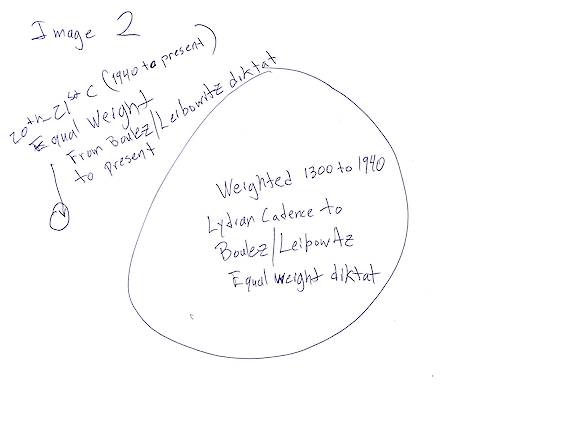 Image 2
20th-21st C (1940 to present)
Equal Weight
From Boulez/Leibowitz diktat
to present
Weighted 1300 to 1940
Lydian Cadence to
Boulez/Leibowitz
Equal weight diktat